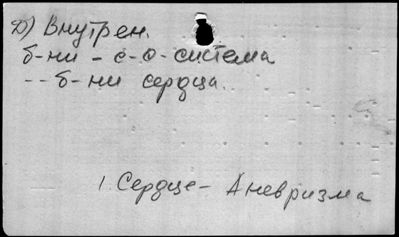 Д) Внутрен.
б-ни - с-о-система
-- б-ни сердца.
1. Сердце - Аневризма